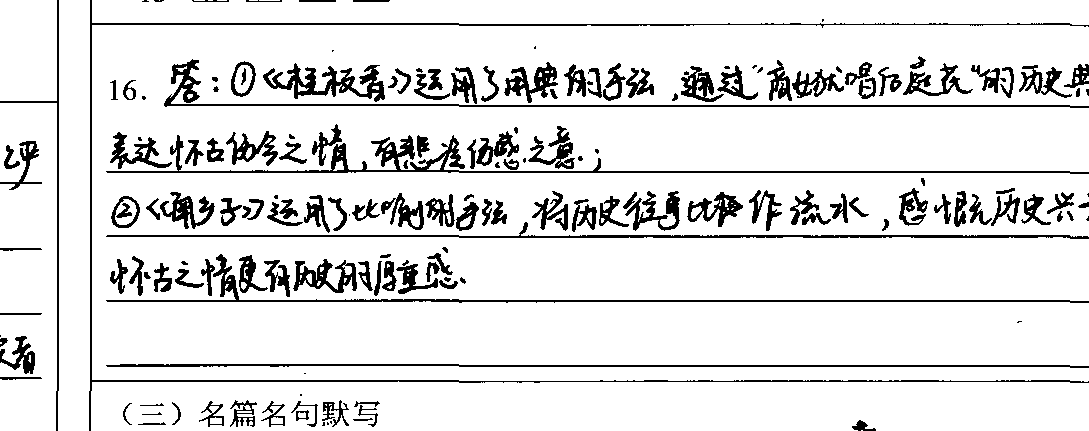 16. 答：①《桂枝香》运用了用典的手法，通过“商女犹唱后庭花”的历史典
表达怀古伤今之情，有悲凉伤感之意；
②《南乡子》运用了比喻的手法，将历史往事比作流水，感慨历史兴
怀古之情更有历史的厚重感.
（三）名篇名句默写